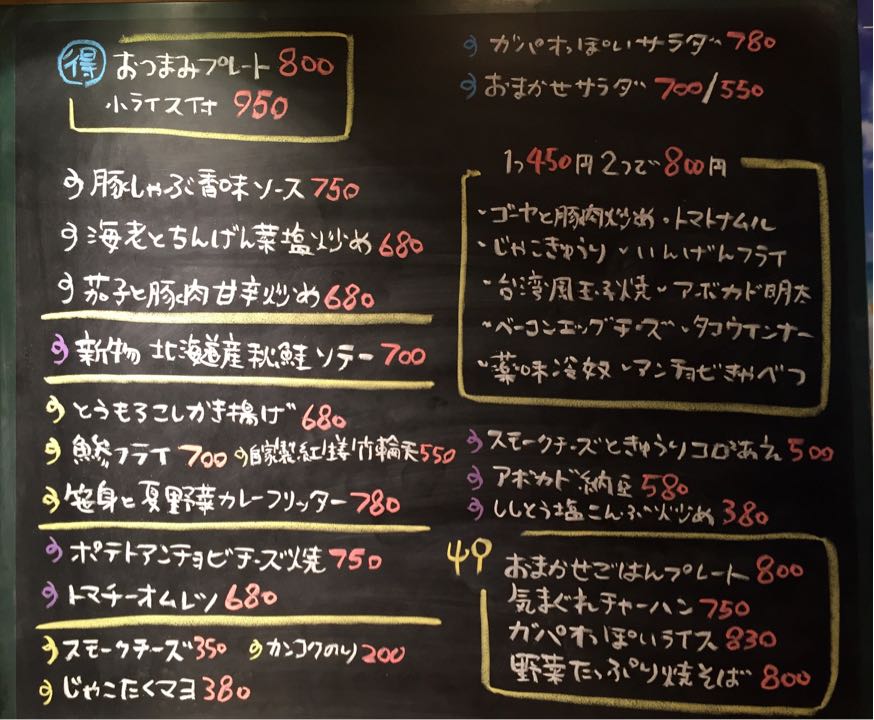 得 おつまみプレート 800
小ライス付 950
豚しゃぶ香味ソース 750
海老とちんげん菜塩炒め 680
茄子と豚肉甘辛炒め 680
新物 北海道産秋鮭ソテー 700
とうもろこしかき揚げ 680
鯵フライ 700 自家製紅生姜竹輪天 550
笹身と夏野菜カレーフリッター 780
ポテトアンチョビチーズ焼 750
トマチーオムレツ 680
スモークチーズ 350 カンコクのり 200
じゃこたくマヨ 380
ガパオっぽいサラダ 780
おまかせサラダ 700/550
1つ450円 2つで800円
・ゴーヤと豚肉炒め ・トマトナムル
・じゃこきゅうり ・いんげんフライ
・台湾風玉子焼 ・アボカド明太
・ベーコンエッグチーズ ・タコウインナー
・薬味冷奴 ・アンチョビきゃべつ
スモークチーズときゅうりコロコロあえ 500
アボカド納豆 580
ししとう塩こんぶ炒め 380
おまかせごはんプレート 800
気まぐれチャーハン 750
ガパオっぽいライス 830
野菜たっぷり焼そば 800